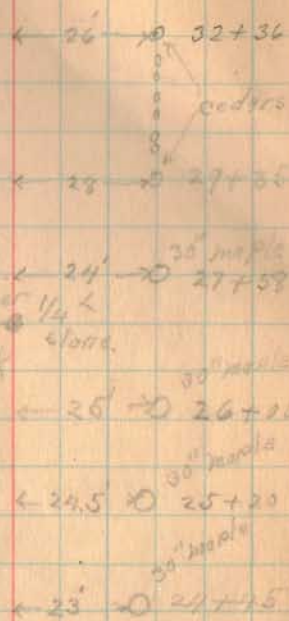 26' 32+36
cedars
28 29+35
30" maple
24' 27+58
1/4
stone.
30" maple
25' 26+
30" maple
24.5' 25+20
30" maple
23' 24+45